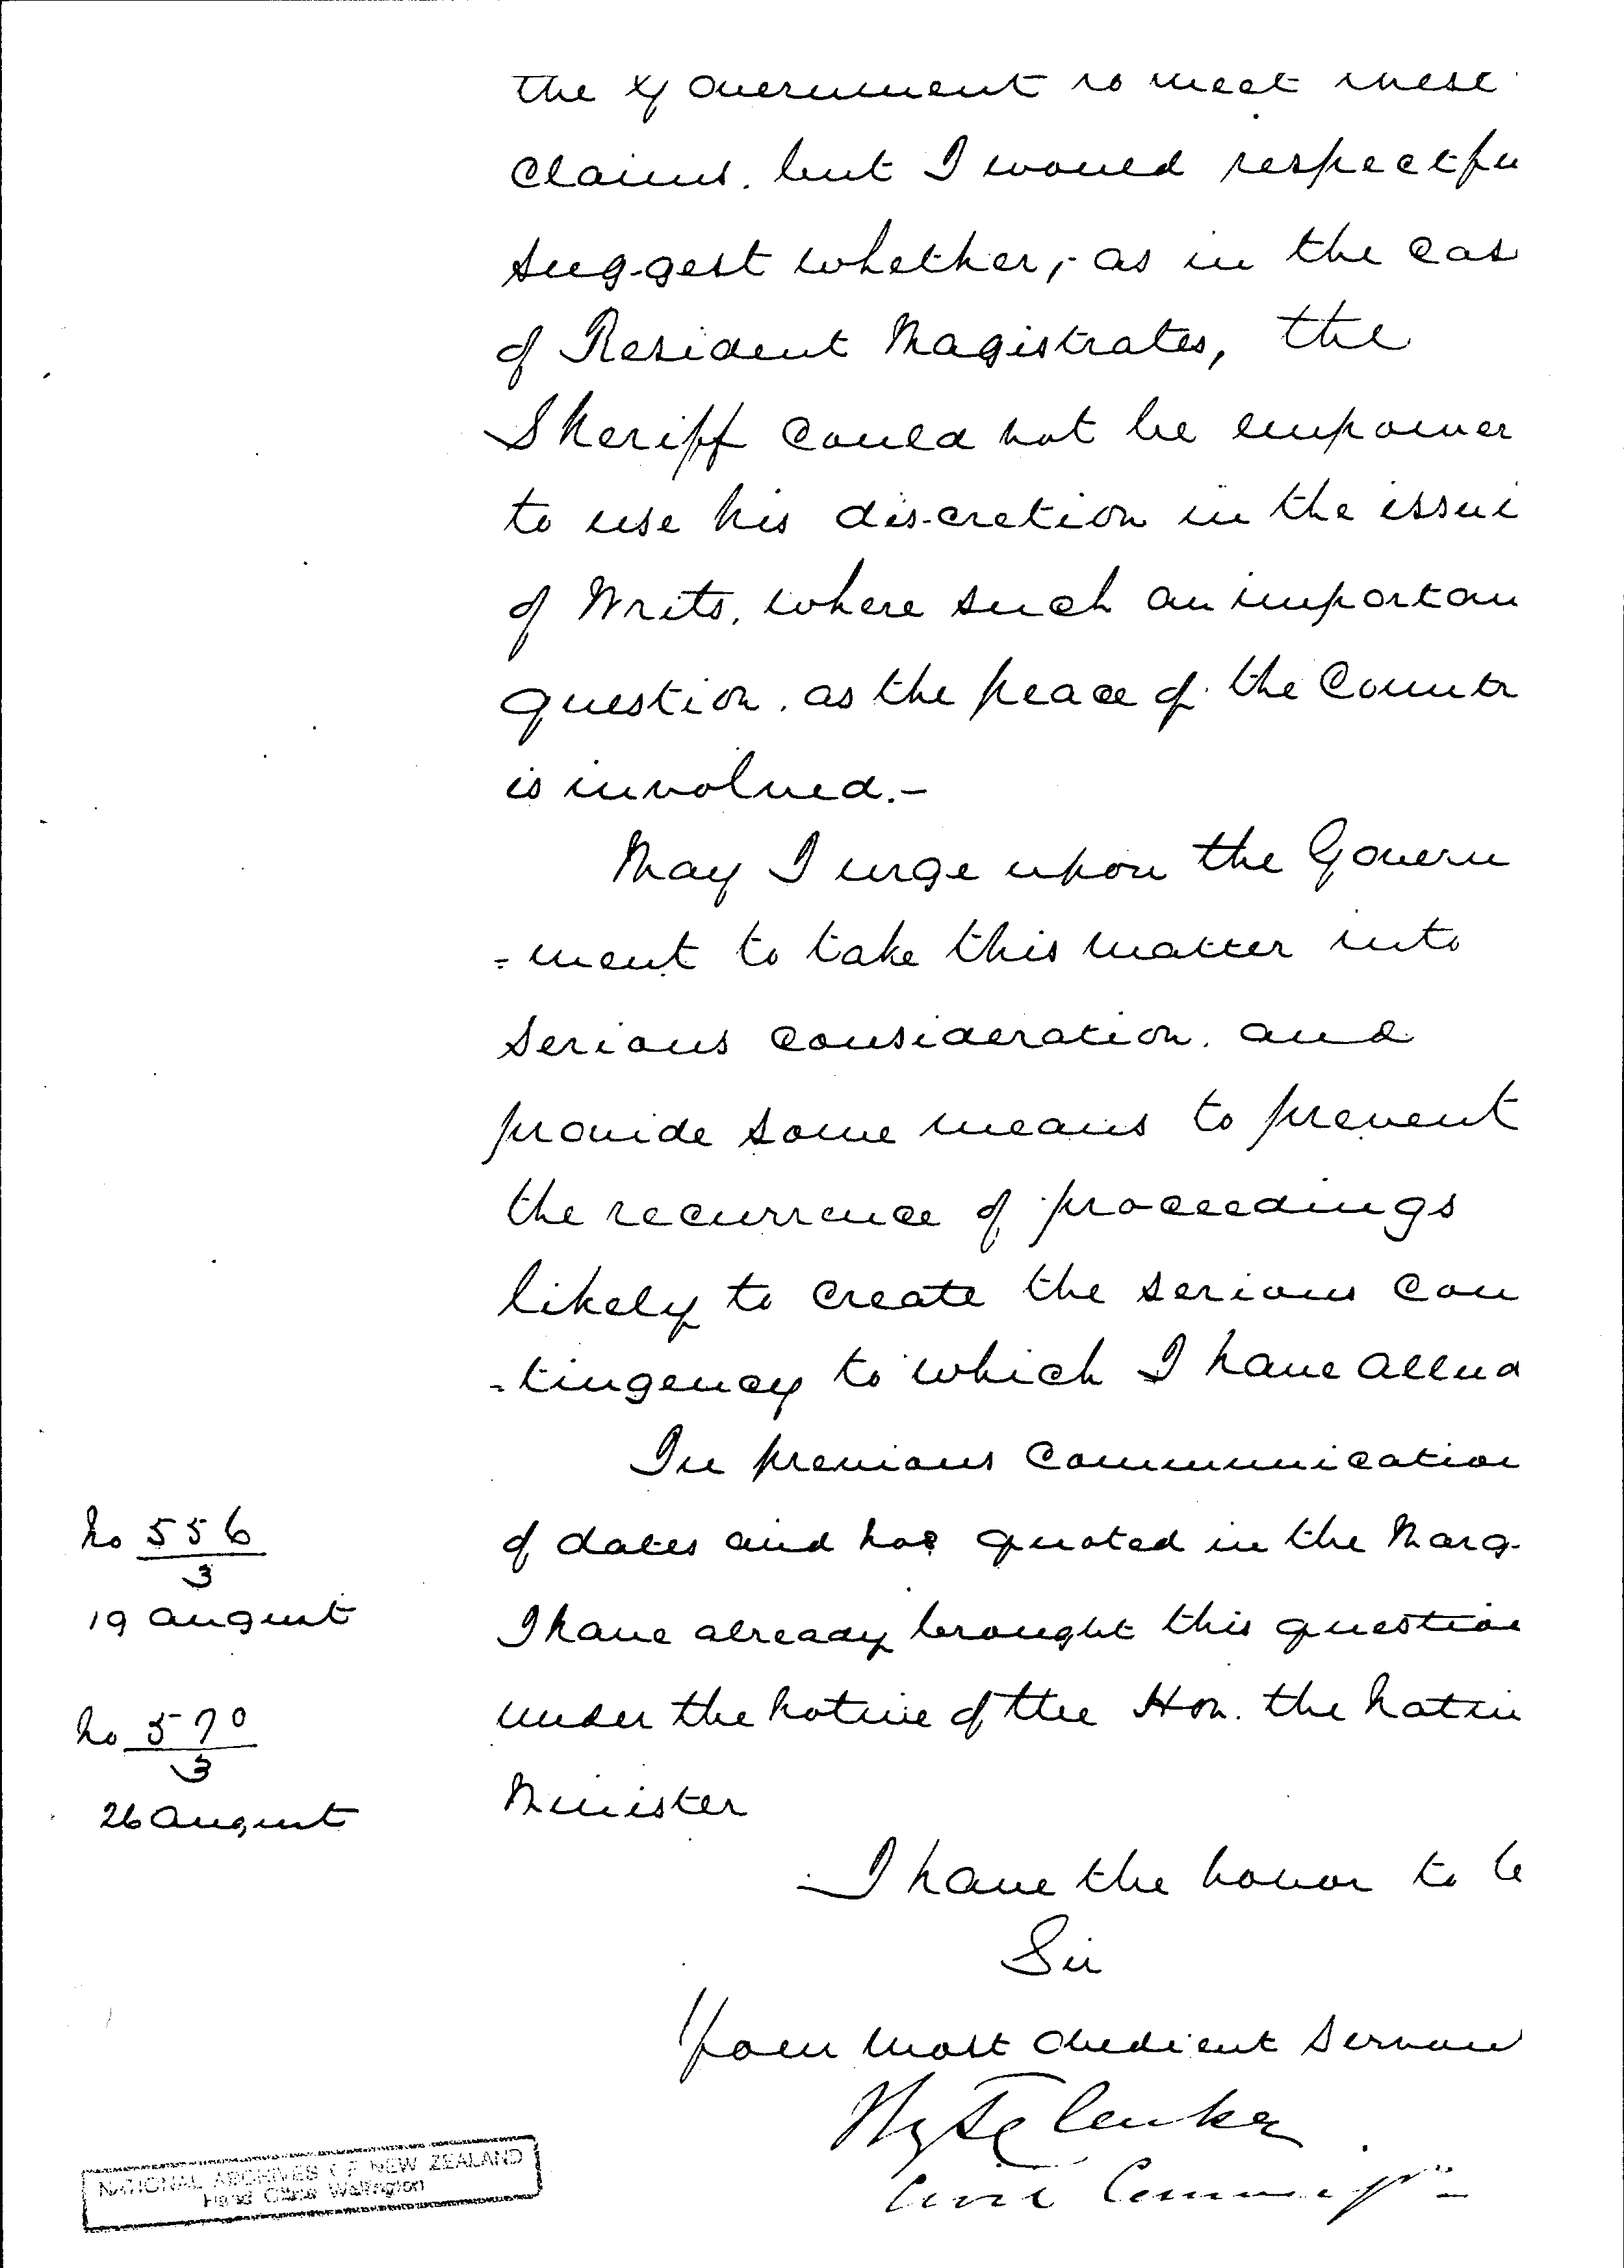 the Government to meet these
claims. but I would respectfu
suggest whether, as in the cas
of Resident Magistrates, the
Sheriff could not be empower
to use his discretion in the issui
of Writs, where such an importan
question. as the peace of the Countr
is involved.-
May I urge upon the Govern
=ment to take this matter into
serious consideration. and
provide some means to prevent
the recurrence of proceedings
likely to create the serious con
=tingency to which I have allud
In previous communication
No 556
3
19 August
of dates and nos quoted in the Marg
I have already brought this question
No 570
3
26 August
under the notice of the Hon. the Nativ
Minister
I have the honor to b
Sir
Your most obedient servan
Civil Commissr
NATIONAL ARCHIVES OF NEW ZEALAND
Head Office Wellington